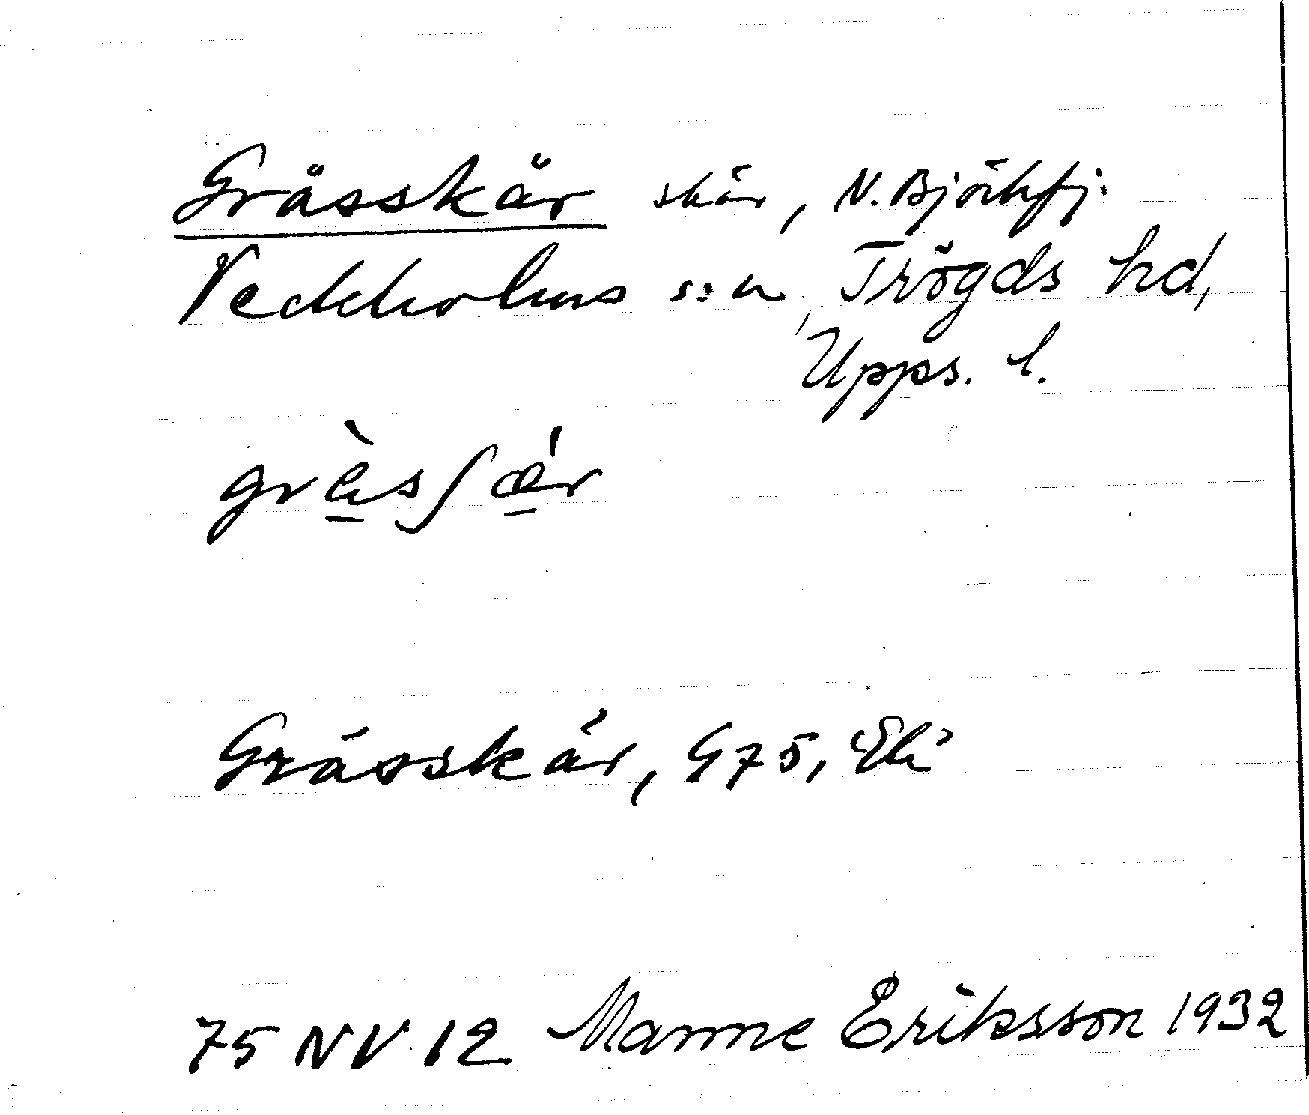 Grässkär skär, N. Björkfj.
Veckholms s:n, Trögds hd,
Upps. l.
Grässkär, G75, Ek
75 NV 12 Manne Eriksson 1932